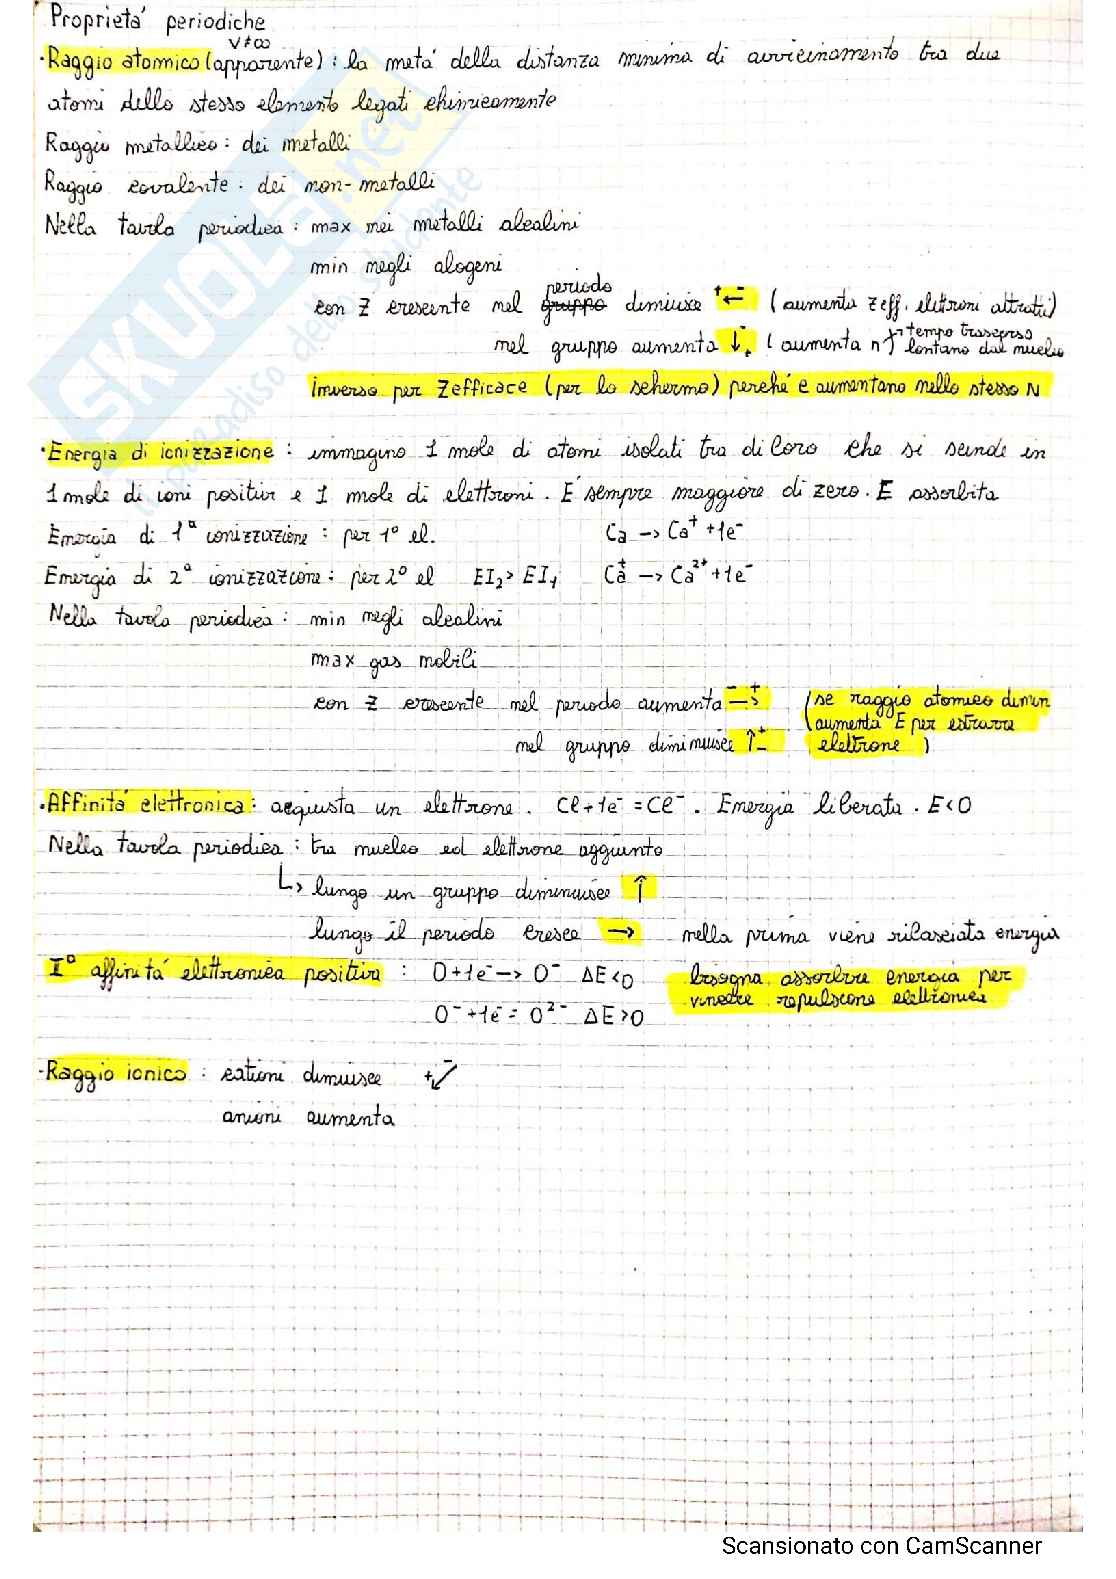 Proprietà periodiche
V≠∞
·Raggio atomico (apparente): la metà della distanza minima di avvicinamento tra due
atomi dello stesso elemento legati chimicamente
Raggio metallico: dei metalli
Raggio covalente: dei non-metalli
Nella tavola periodica: max nei metalli alcalini
min negli alogeni
periodo
con Z crescente nel gruppo diminuisce +←- (aumenta zeff. elettroni attratti)
nel gruppo aumenta ↓+ (aumenta n) → tempo trascorso lontano dal nucleo
inverso per Zefficace (per lo schermo) perché e aumentano nello stesso N
·Energia di ionizzazione: immagino 1 mole di atomi isolati tra di loro che si scinde in
1 mole di ioni positivi e 1 mole di elettroni. È sempre maggiore di zero. E assorbita
Energia di 1ª ionizzazione: per 1º el. Ca → Ca⁺ + 1e⁻
Energia di 2ª ionizzazione: per 2º el EI₂ > EI₁ Ca⁺ → Ca²⁺ + 1e⁻
Nella tavola periodica: min negli alcalini
max gas nobili
con Z crescente nel periodo aumenta -→+ (se raggio atomico dimin
(aumenta E per estrarre
nel gruppo diminuisce ↑+- elettrone)
·Affinità elettronica: acquista un elettrone. Cl + 1e⁻ = Cl⁻. Energia liberata. E<0
Nella tavola periodica: tra nucleo ed elettrone aggiunto
↳ lungo un gruppo diminuisce ↑
lungo il periodo cresce → nella prima viene rilasciata energia
Iº affinità elettronica positiva: O + 1e⁻ → O⁻ ΔE<0 bisogna assorbire energia per
vincere repulsione elettronica
O⁻ + 1e⁻ = O²⁻ ΔE>0
·Raggio ionico: cationi diminuisce +↙-
anioni aumenta
SKUOLA.net
il paradiso dello studente
Scansionato con CamScanner